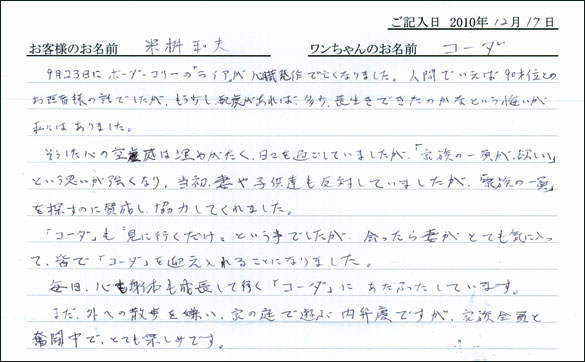 ご記入日 2010年12月17日
お客様のお名前 米桝和夫 ワンちゃんのお名前 コーダ
9月23日にボーダーコリーの「ライア」が心臓発作で亡くなりました。人間でいえば90才位との
お医者様の話でしたが、もう少し配慮があれば、多少、長生きできたのかなという悔いが
私にはありました。
そうした心の空虚感は埋めがたく、日々を過ごしていましたが、「家族の一員が欲しい」
という思いが強くなり、当初、妻や子供達も反対していましたが、「家族の一員」
を探すのに賛成し、協力してくれました。
「コーダ」も"見に行くだけ"という事でしたが、会ったら妻がとても気に入っ
て、皆で「コーダ」を迎え入れることになりました。
毎日、心も身体も成長して行く「コーダ」にあたふたしています。
まだ、外への散歩を嫌い、家の庭で遊ぶ内弁慶ですが、家族全員と
奮闘中で、とても楽しみです。